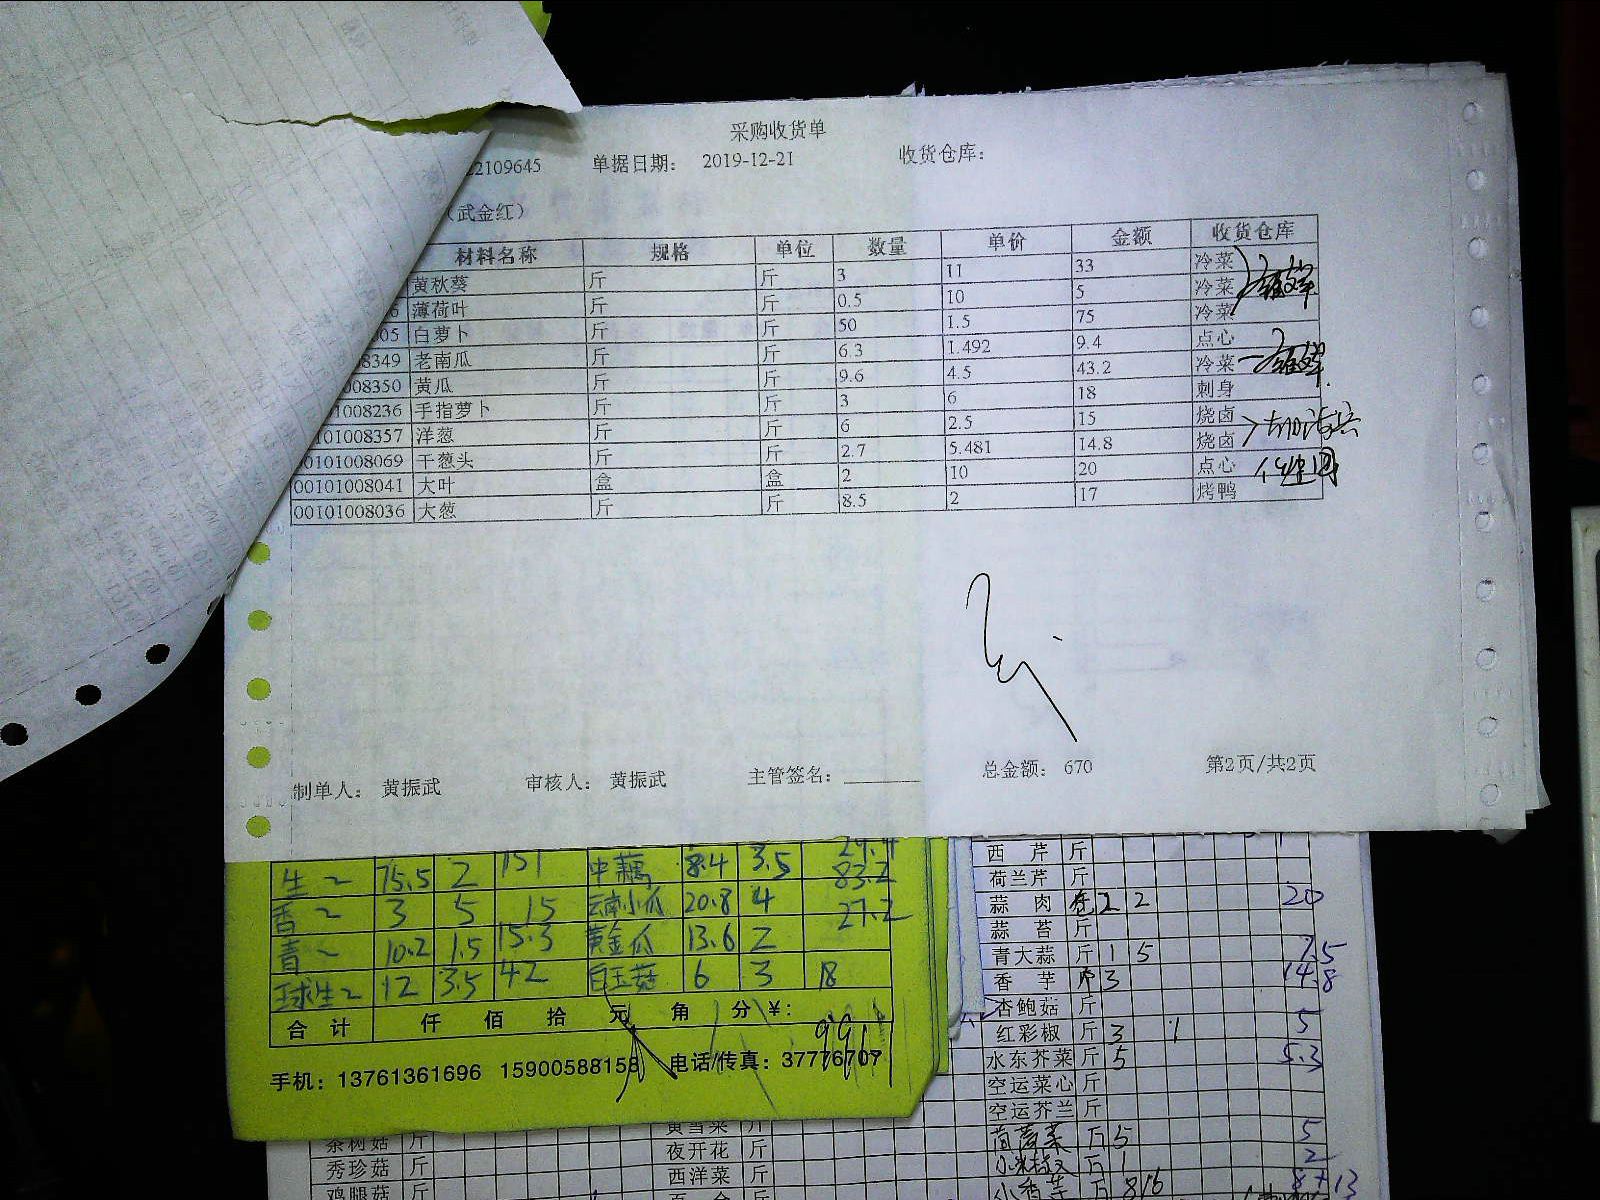 采购收货单
22109645 单据日期: 2019-12-21 收货仓库:
(武金红)
材料名称 规格 单位 数量 单价 金额 收货仓库
黄秋葵 斤 斤 3 11 33 冷菜
6 薄荷叶 斤 斤 0.5 10 5 冷菜
005 白萝卜 斤 斤 50 1.5 75 冷菜
008349 老南瓜 斤 斤 6.3 1.492 9.4 点心
008350 黄瓜 斤 斤 9.6 4.5 43.2 冷菜
01008236 手指萝卜 斤 斤 3 6 18 刺身
0101008357 洋葱 斤 斤 6 2.5 15 烧卤
00101008069 干葱头 斤 斤 2.7 5.481 14.8 烧卤
00101008041 大叶 盒 盒 2 10 20 点心
00101008036 大葱 斤 斤 8.5 2 17 烤鸭
制单人: 黄振武 审核人: 黄振武 主管签名: 总金额: 670 第2页/共2页
生~ 75.5 2 151 中藕 8.4 3.5 29.4
香~ 3 5 15 云南小瓜 20.8 4 83.2
青~ 10.2 1.5 15.3 黄金瓜 13.6 2 27.2
球生~ 12 3.5 42 白玉菇 6 3 18
合计 仟 佰 拾 元 角 分 ¥:
手机: 13761361696 15900588158 电话/传真: 37776707
西芹 斤
荷兰芹 斤
蒜肉 包 2 2 20
蒜苔 斤
青大蒜 斤 1 5 7.5
香芋 斤 3 14.8
杏鲍菇 斤
红彩椒 斤 3 5
水东芥菜 斤 5 5.3
空运菜心 斤
空运芥兰 斤
茼蒿菜 斤 5 5
小米椒 斤 1 2
小香芋 斤
茶树菇 斤
秀珍菇 斤
鸡腿菇 斤
黄雪菜 斤
夜开花 斤
西洋菜 斤
百合 斤